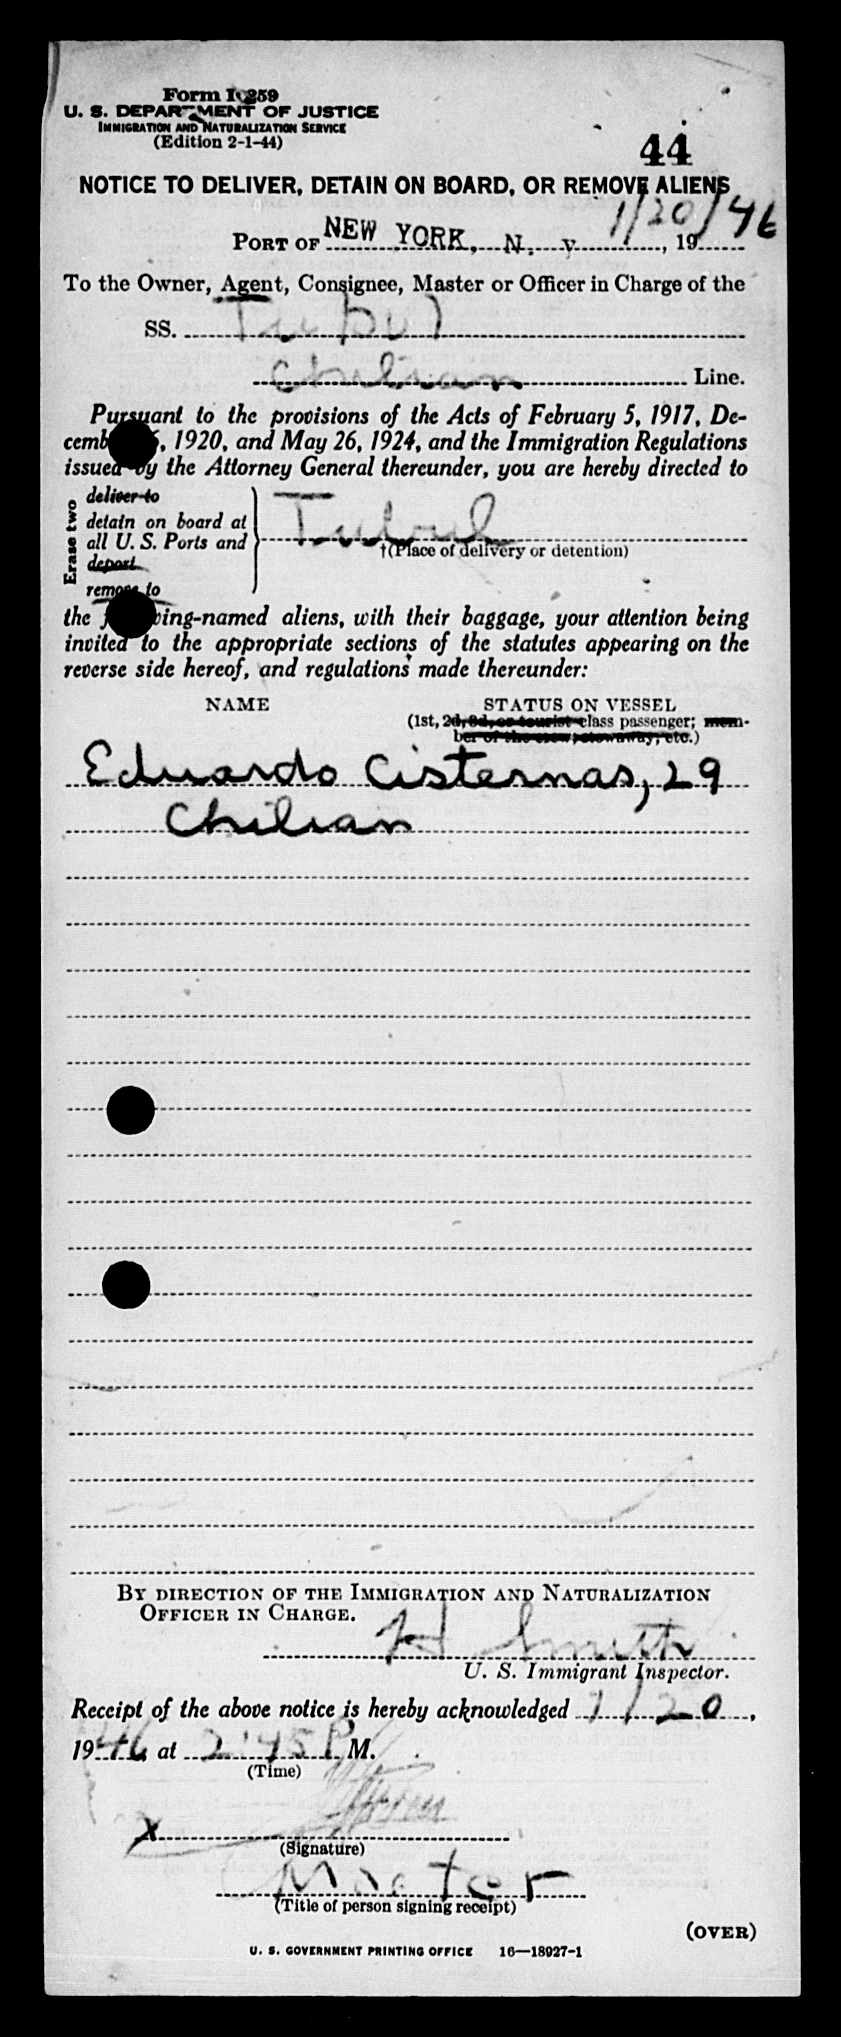 Form I-259
U. S. DEPARTMENT OF JUSTICE
IMMIGRATION AND NATURALIZATION SERVICE
(Edition 2-1-44)
44
NOTICE TO DELIVER, DETAIN ON BOARD, OR REMOVE ALIENS
PORT OF NEW YORK, N. Y. 1/20/46, 19
To the Owner, Agent, Consignee, Master or Officer in Charge of the
SS. Tubul
Chilian Line.
Pursuant to the provisions of the Acts of February 5, 1917, De-
cemb 6, 1920, and May 26, 1924, and the Immigration Regulations
issued by the Attorney General thereunder, you are hereby directed to
Erase two
deliver to
detain on board at
all U. S. Ports and
deport
remove to
Tubul
†(Place of delivery or detention)
the ing-named aliens, with their baggage, your attention being
invited to the appropriate sections of the statutes appearing on the
reverse side hereof, and regulations made thereunder:
NAME STATUS ON VESSEL
(1st, 2d, 3d, or tourist class passenger; mem-
ber of the crew, stowaway, etc.)
Eduardo Cisternas, 29
Chilian
BY DIRECTION OF THE IMMIGRATION AND NATURALIZATION
OFFICER IN CHARGE.
H Smith
U. S. Immigrant Inspector.
Receipt of the above notice is hereby acknowledged 1/20,
1946, at 2:45 P.M.
(Time)
X
(Signature)
Master
(Title of person signing receipt)
(OVER)
U. S. GOVERNMENT PRINTING OFFICE 16—18927-1